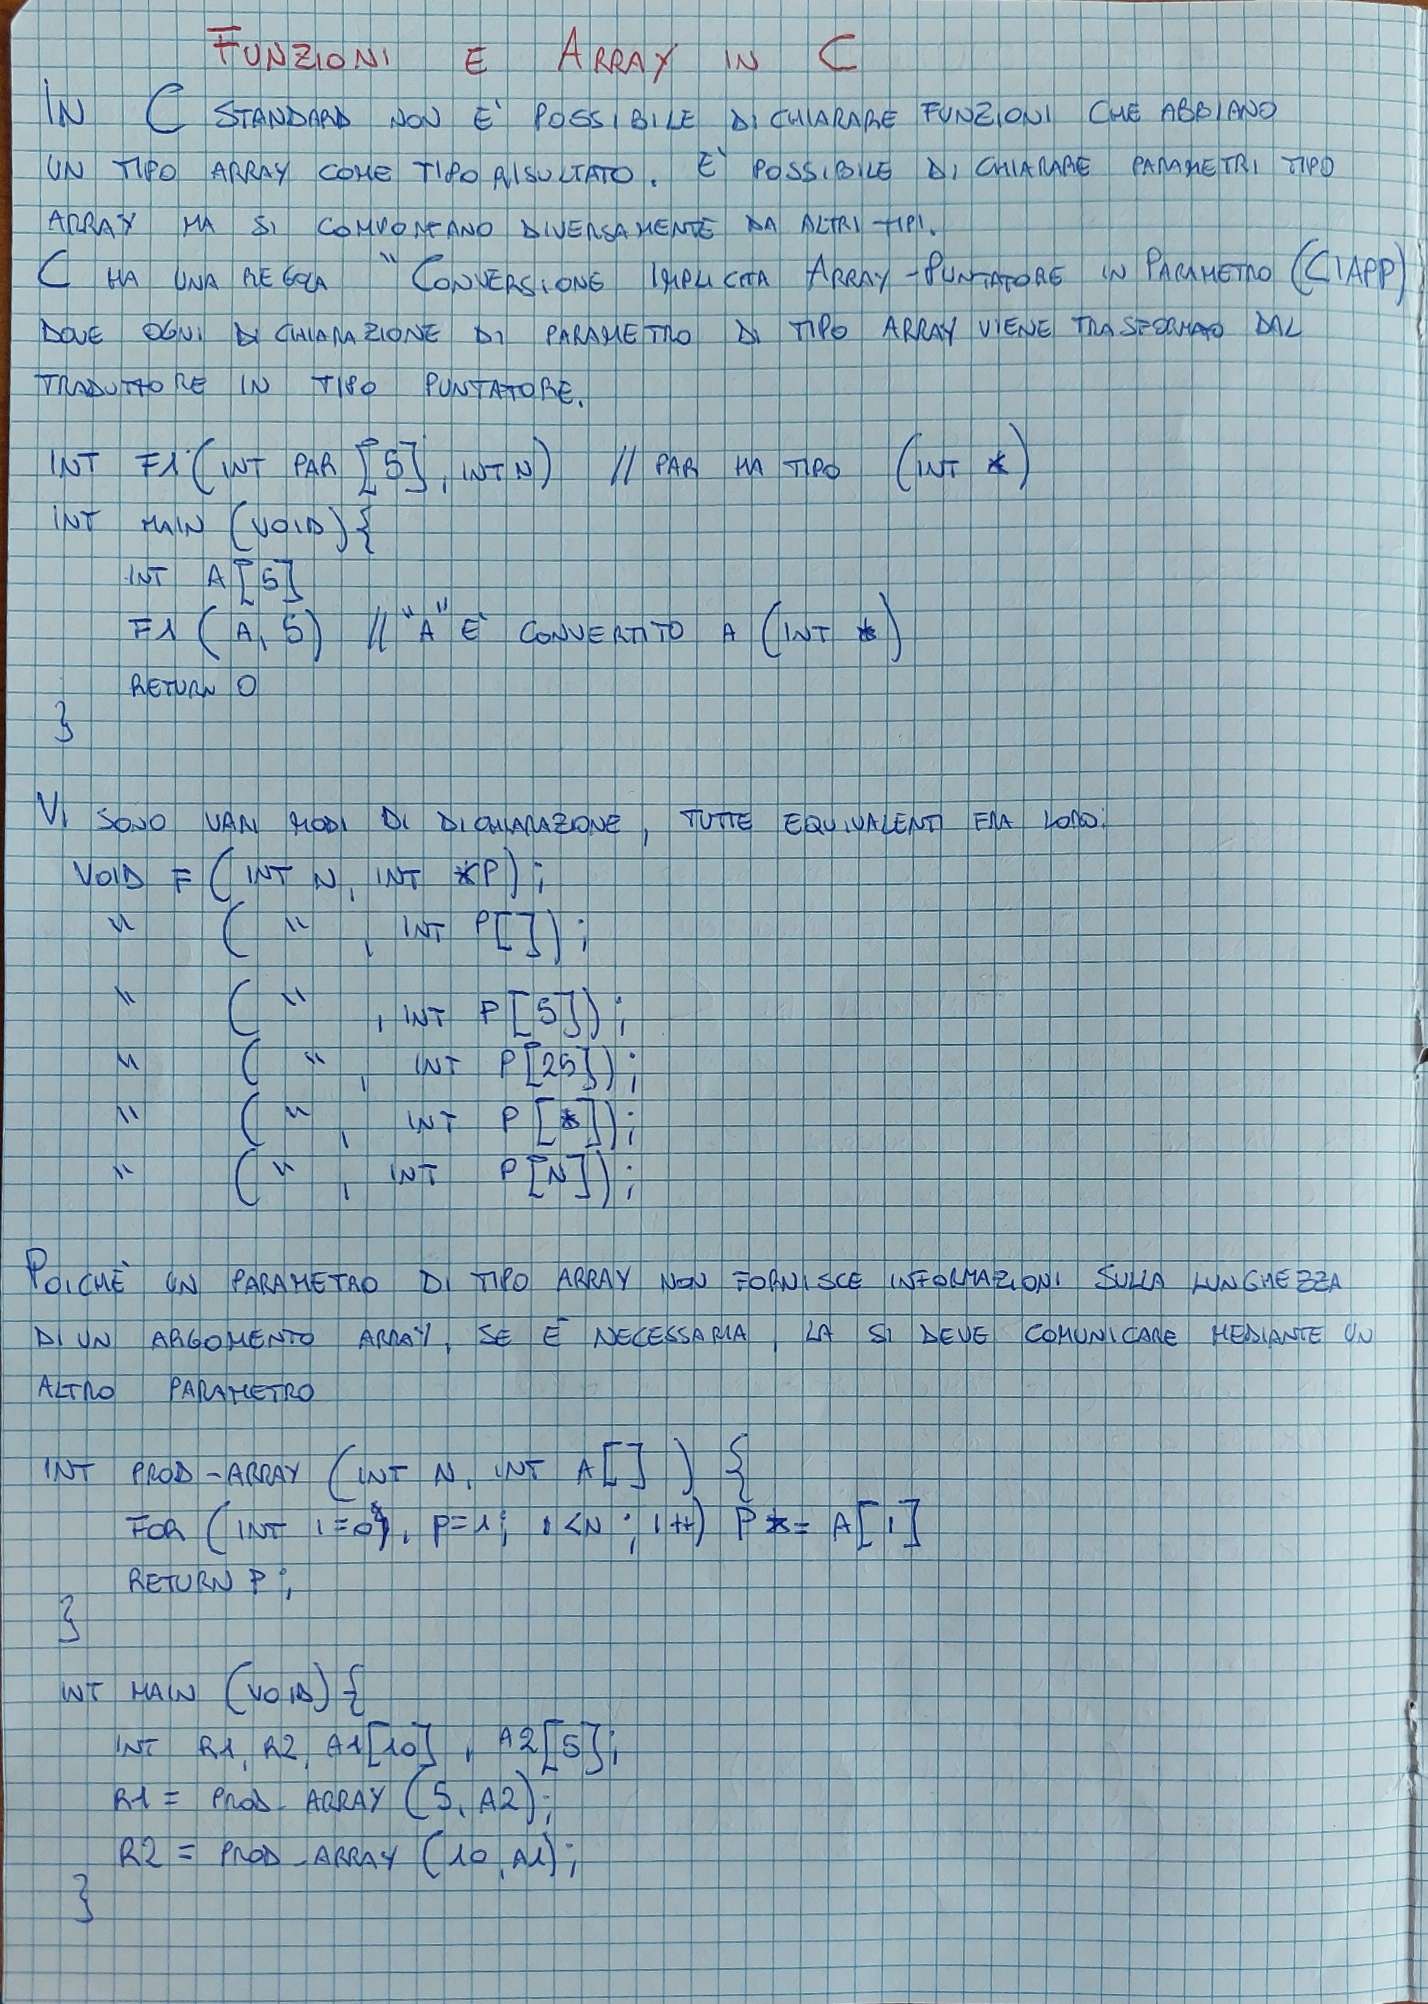 FUNZIONI E ARRAY IN C
IN C STANDARD NON E' POSSIBILE DICHIARARE FUNZIONI CHE ABBIANO
UN TIPO ARRAY COME TIPO RISULTATO. E' POSSIBILE DICHIARARE PARAMETRI TIPO
ARRAY MA SI COMPORTANO DIVERSAMENTE DA ALTRI TIPI.
C HA UNA REGOLA "CONVERSIONE IMPLICITA ARRAY-PUNTATORE IN PARAMETRO (CIAPP)
DOVE OGNI DICHIARAZIONE DI PARAMETRO DI TIPO ARRAY VIENE TRASFORMATO DAL
TRADUTTORE IN TIPO PUNTATORE.
INT F1 (INT PAR [5], INT N) // PAR HA TIPO (INT *)
INT MAIN (VOID) {
INT A[5]
F1 (A, 5) // "A" E' CONVERTITO A (INT *)
RETURN 0
}
VI SONO VARI MODI DI DICHIARAZIONE, TUTTE EQUIVALENTI FRA LORO:
VOID F (INT N, INT *P);
" ( " , INT P[]);
" ( " , INT P[5]);
" ( " , INT P[25]);
" ( " , INT P[*]);
" ( " , INT P[N]);
POICHÈ UN PARAMETRO DI TIPO ARRAY NON FORNISCE INFORMAZIONI SULLA LUNGHEZZA
DI UN ARGOMENTO ARRAY, SE È NECESSARIA, LA SI DEVE COMUNICARE MEDIANTE UN
ALTRO PARAMETRO
INT PROD-ARRAY (INT N, INT A[]) {
FOR (INT I=0, P=1; I<N; I++) P*= A[I]
RETURN P;
}
INT MAIN (VOID) {
INT R1, R2, A1[10], A2[5];
R1 = PROD-ARRAY (5, A2);
R2 = PROD-ARRAY (10, A1);
}